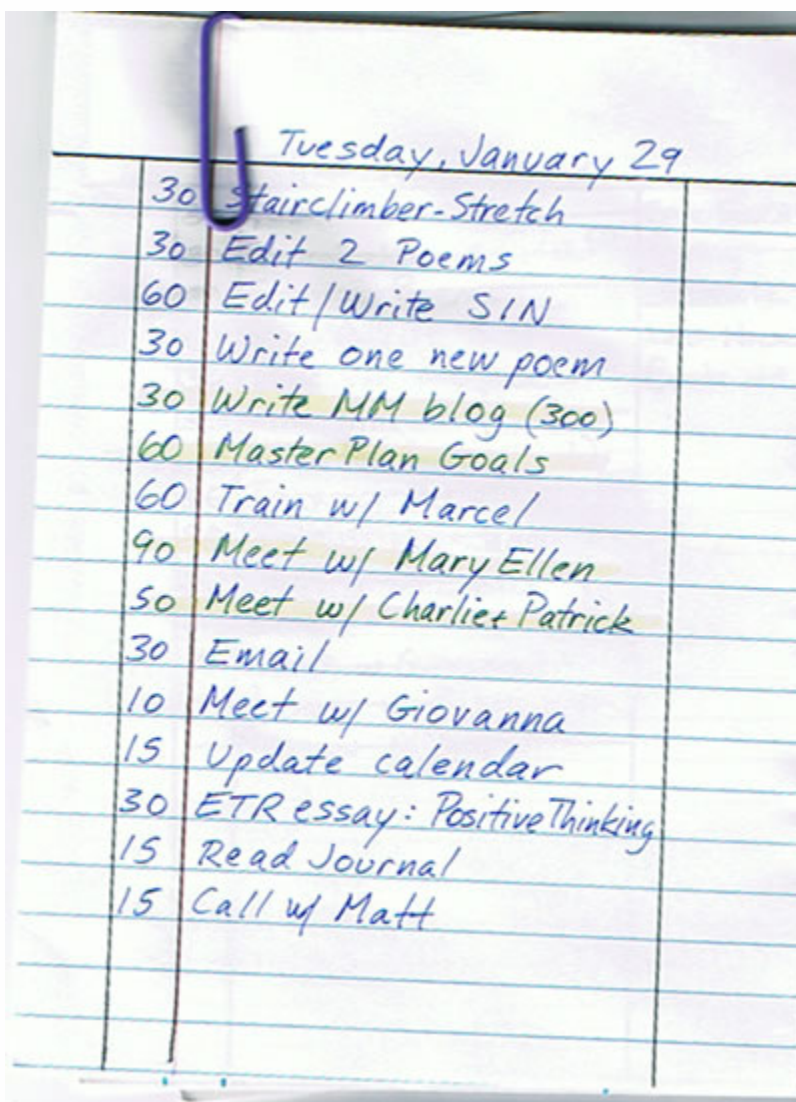 Tuesday, January 29
30 Stairclimber-Stretch
30 Edit 2 Poems
60 Edit/Write SIN
30 Write one new poem
30 Write MM blog (300)
60 Master Plan Goals
60 Train w/ Marcel
90 Meet w/ Mary Ellen
50 Meet w/ Charlie + Patrick
30 Email
10 Meet w/ Giovanna
15 Update calendar
30 ETR essay: Positive Thinking
15 Read Journal
15 Call w/ Matt